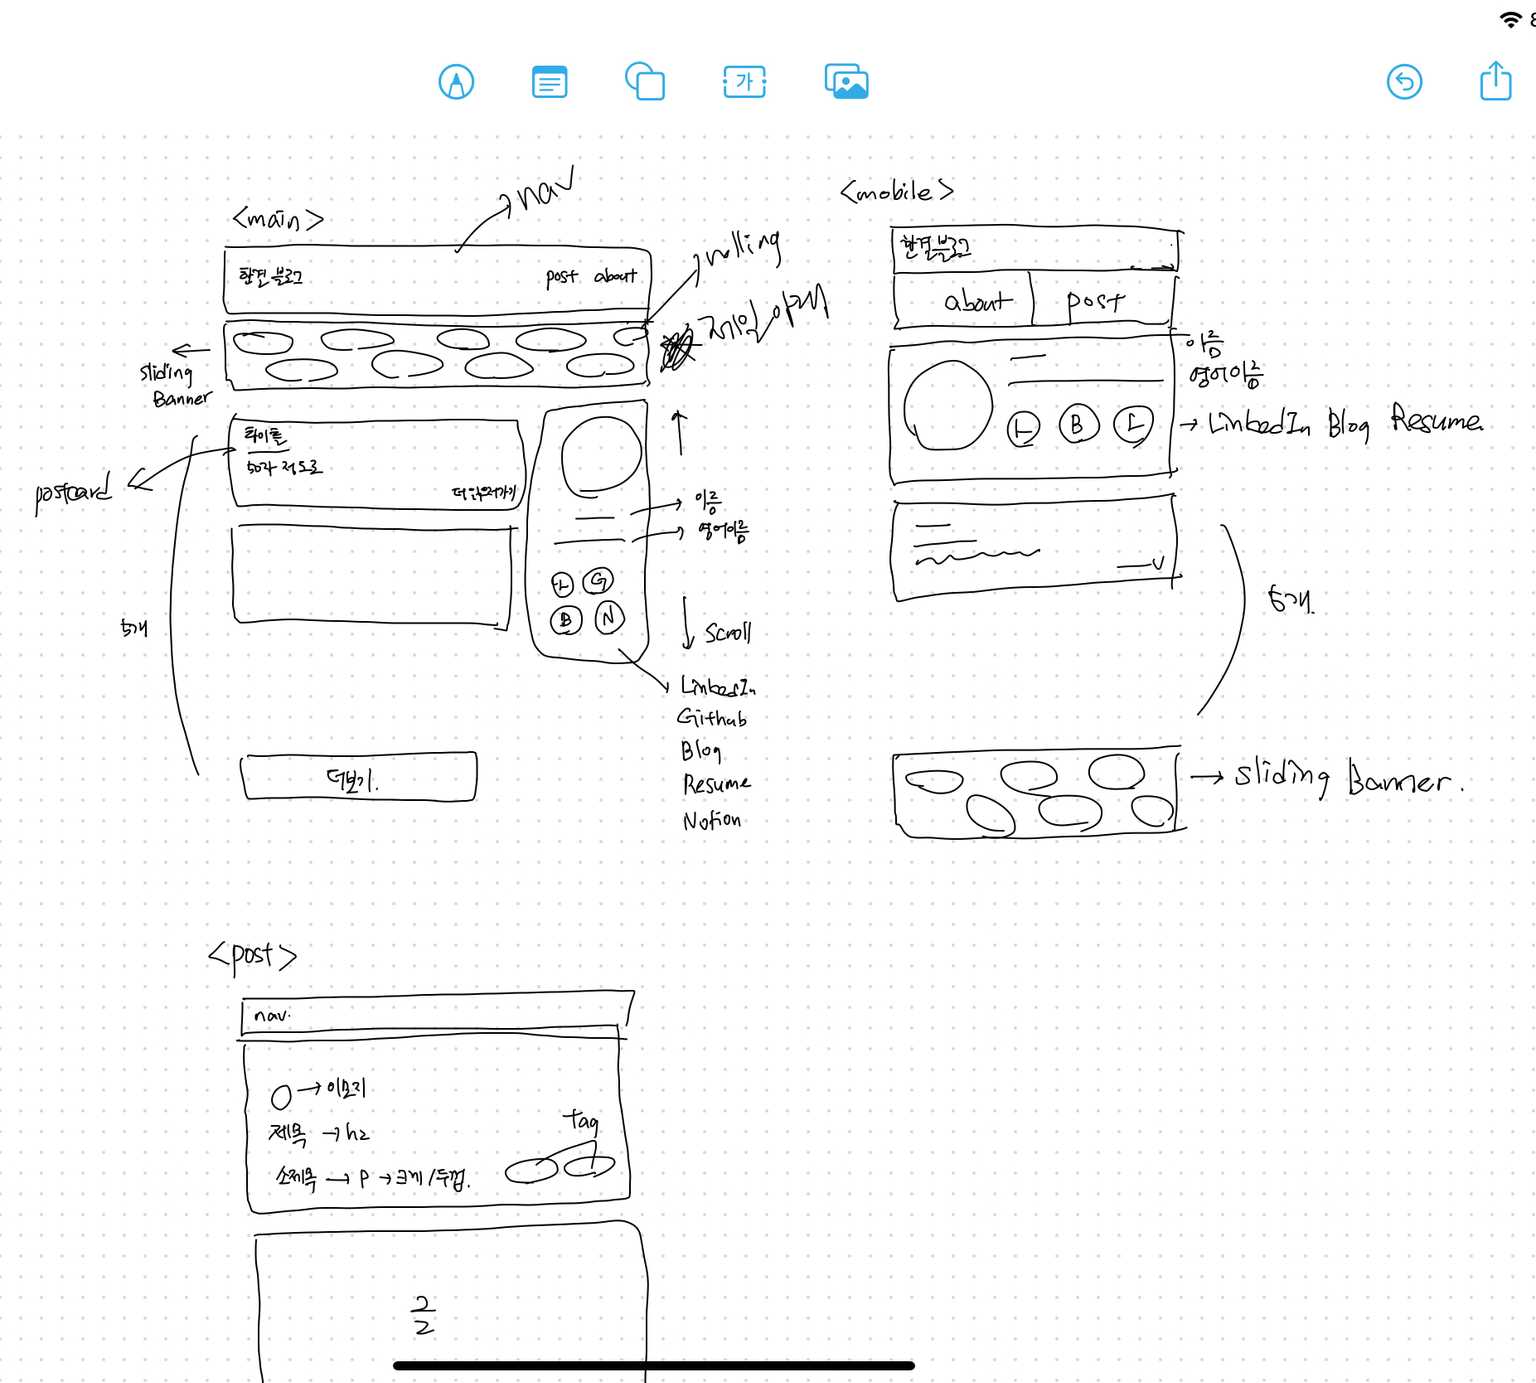 가
<main>
nav
한결 블로그
post about
rolling
제일 아래
sliding
Banner
타이틀
50자 정도로
더 읽으러가기
postcard
5개
이름
영어이름
L G
B N
scroll
LinkedIn
Github
Blog
Resume
Notion
더보기.
<mobile>
한결블로그
about post
이름
영어이름
L B L
LinkedIn Blog Resume
5개.
sliding Banner.
<post>
nav.
이모지
제목 → h2
Tag
소제목 → p → 크게/두껍.